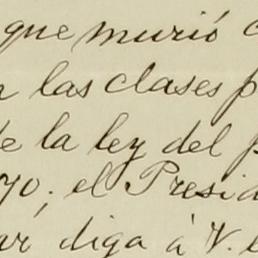 que murió
las clases
de la ley del
70; el Presid
ar diga á V. e